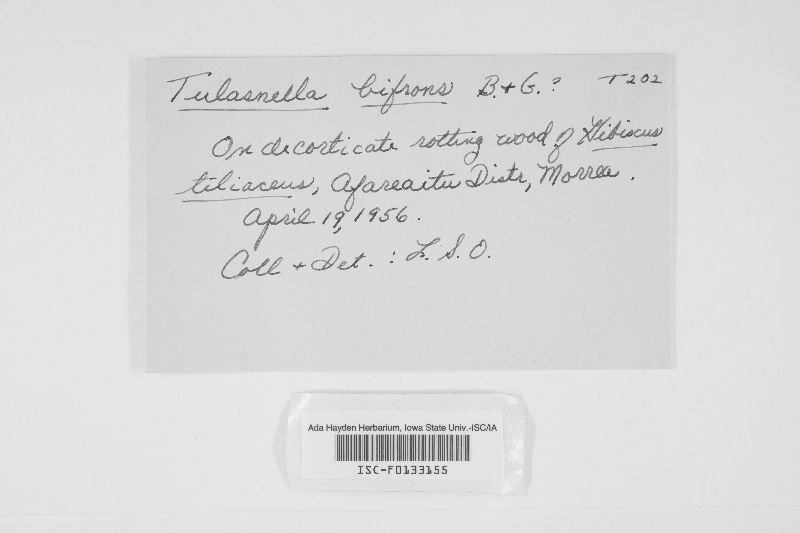 Tulasnella bifrons B. + G. ? T 202
On decorticate rotting wood of Hibiscus
tiliaceus, Afareaitu Distr, Morrea.
April 19, 1956.
Coll + Det. : L. S. O.
Ada Hayden Herbarium, Iowa State Univ.-ISC/IA
ISC-F0133155